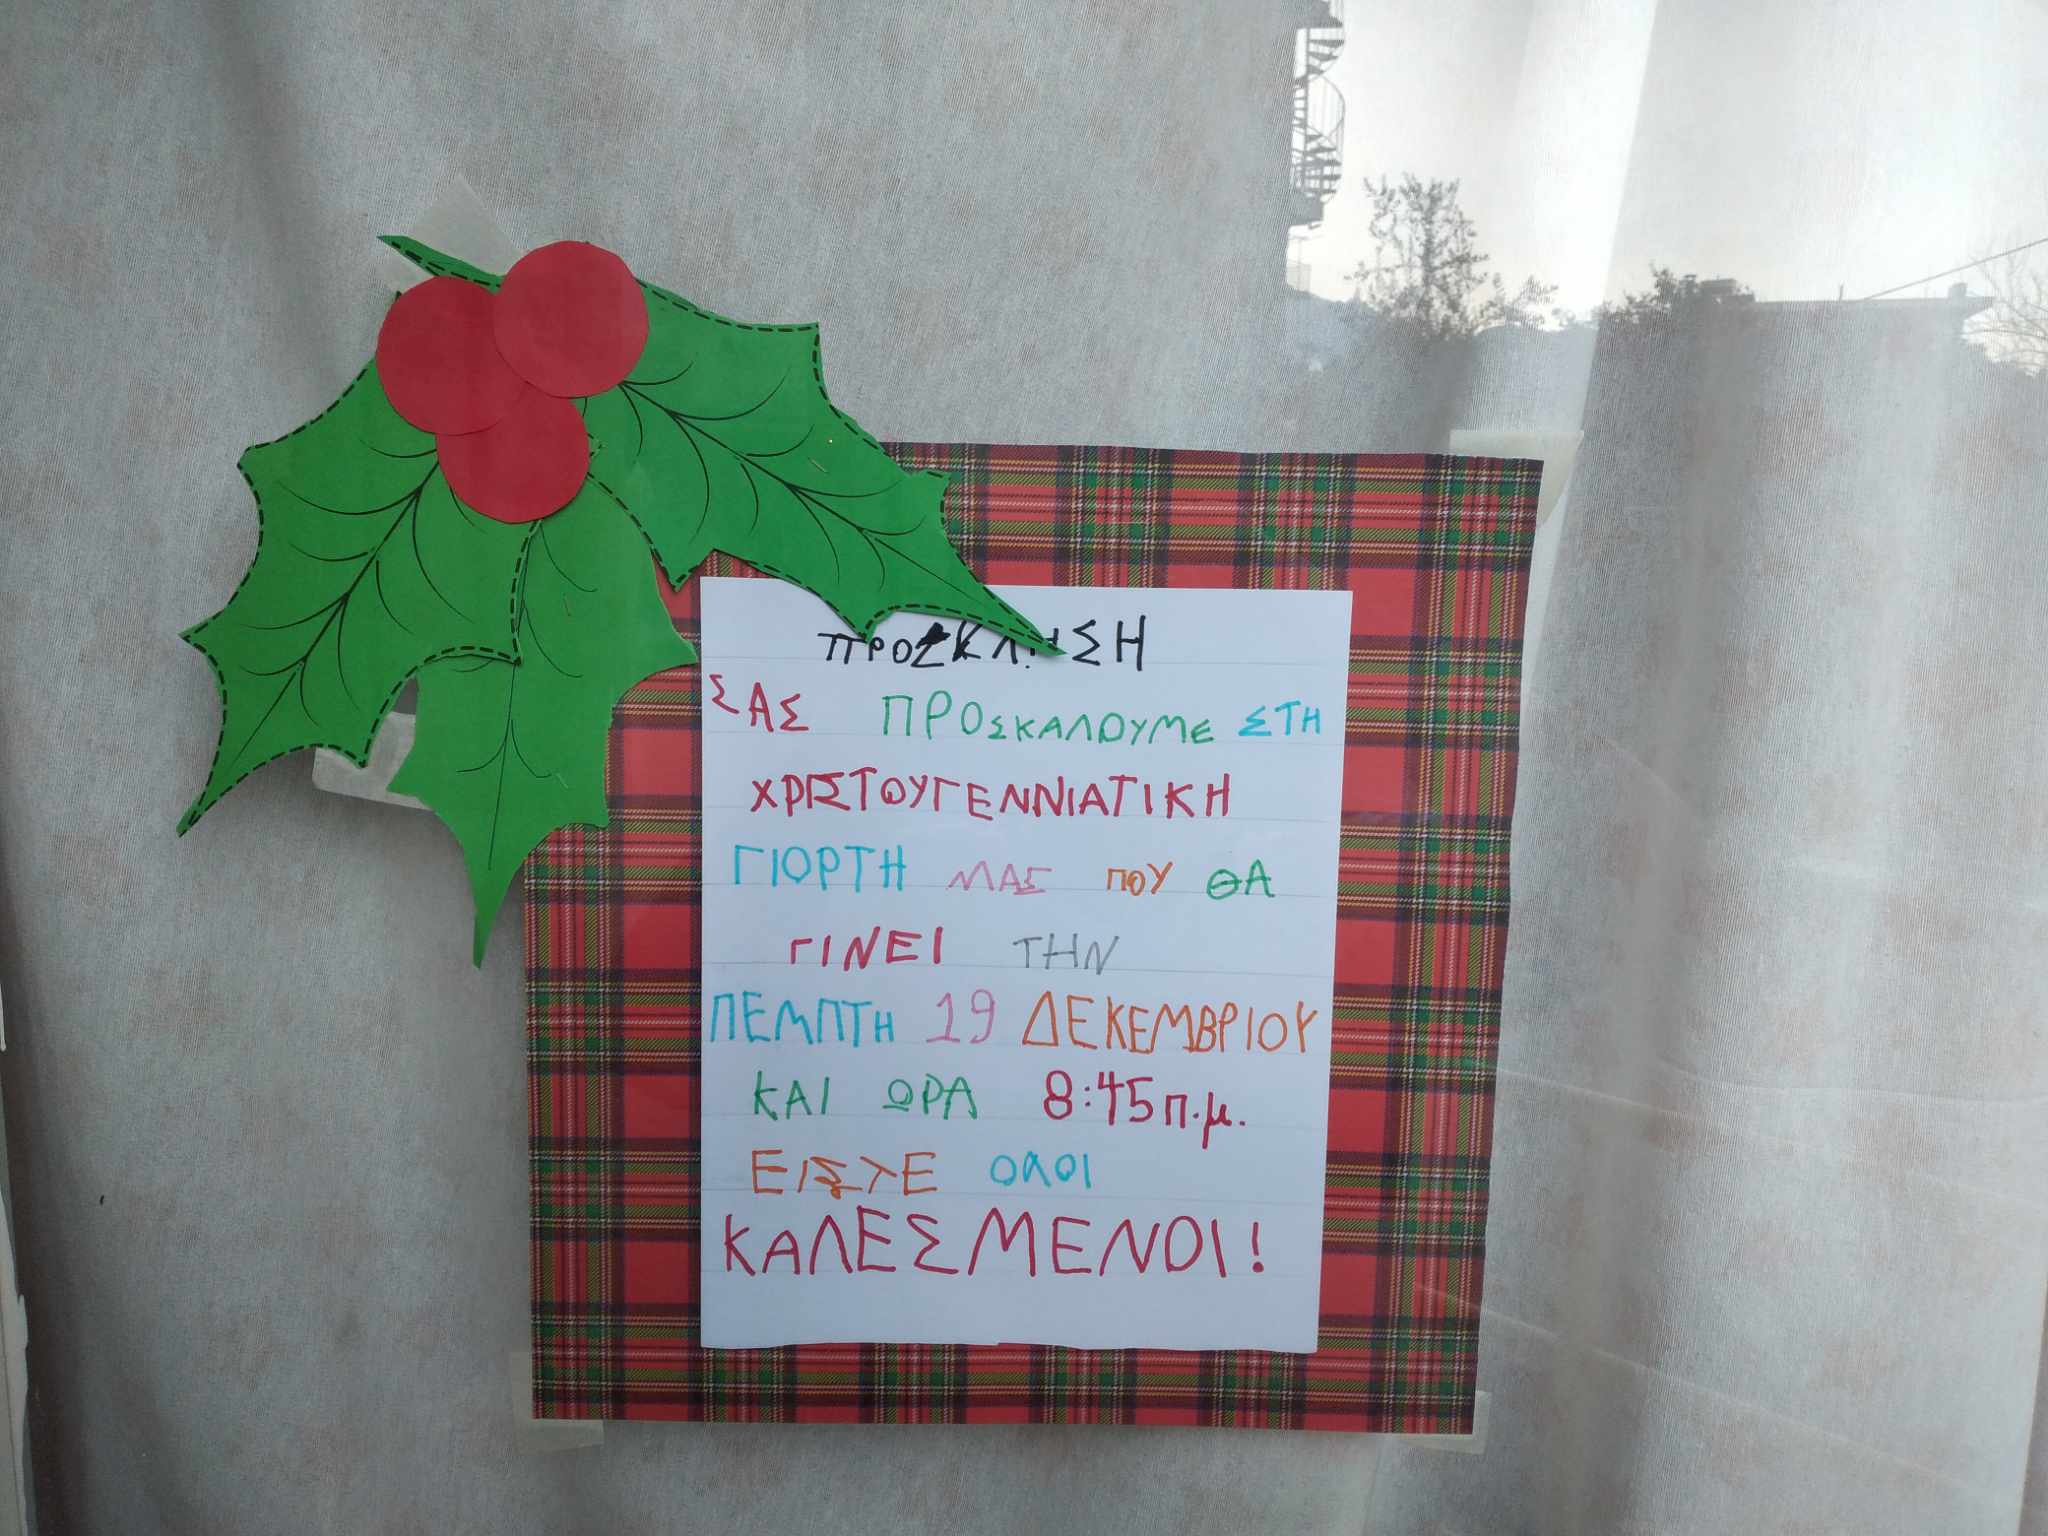 ΠΡΟΣΚΛΗΣΗ
ΣΑΣ ΠΡΟΣΚΑΛΟΥΜΕ ΣΤΗ
ΧΡΙΣΤΟΥΓΕΝΝΙΑΤΙΚΗ
ΓΙΟΡΤΗ ΜΑΣ ΠΟΥ ΘΑ
ΓΙΝΕΙ ΤΗΝ
ΠΕΜΠΤΗ 19 ΔΕΚΕΜΒΡΙΟΥ
ΚΑΙ ΩΡΑ 8:45π.μ.
ΕΙΣΤΕ ΟΛΟΙ
ΚΑΛΕΣΜΕΝΟΙ!